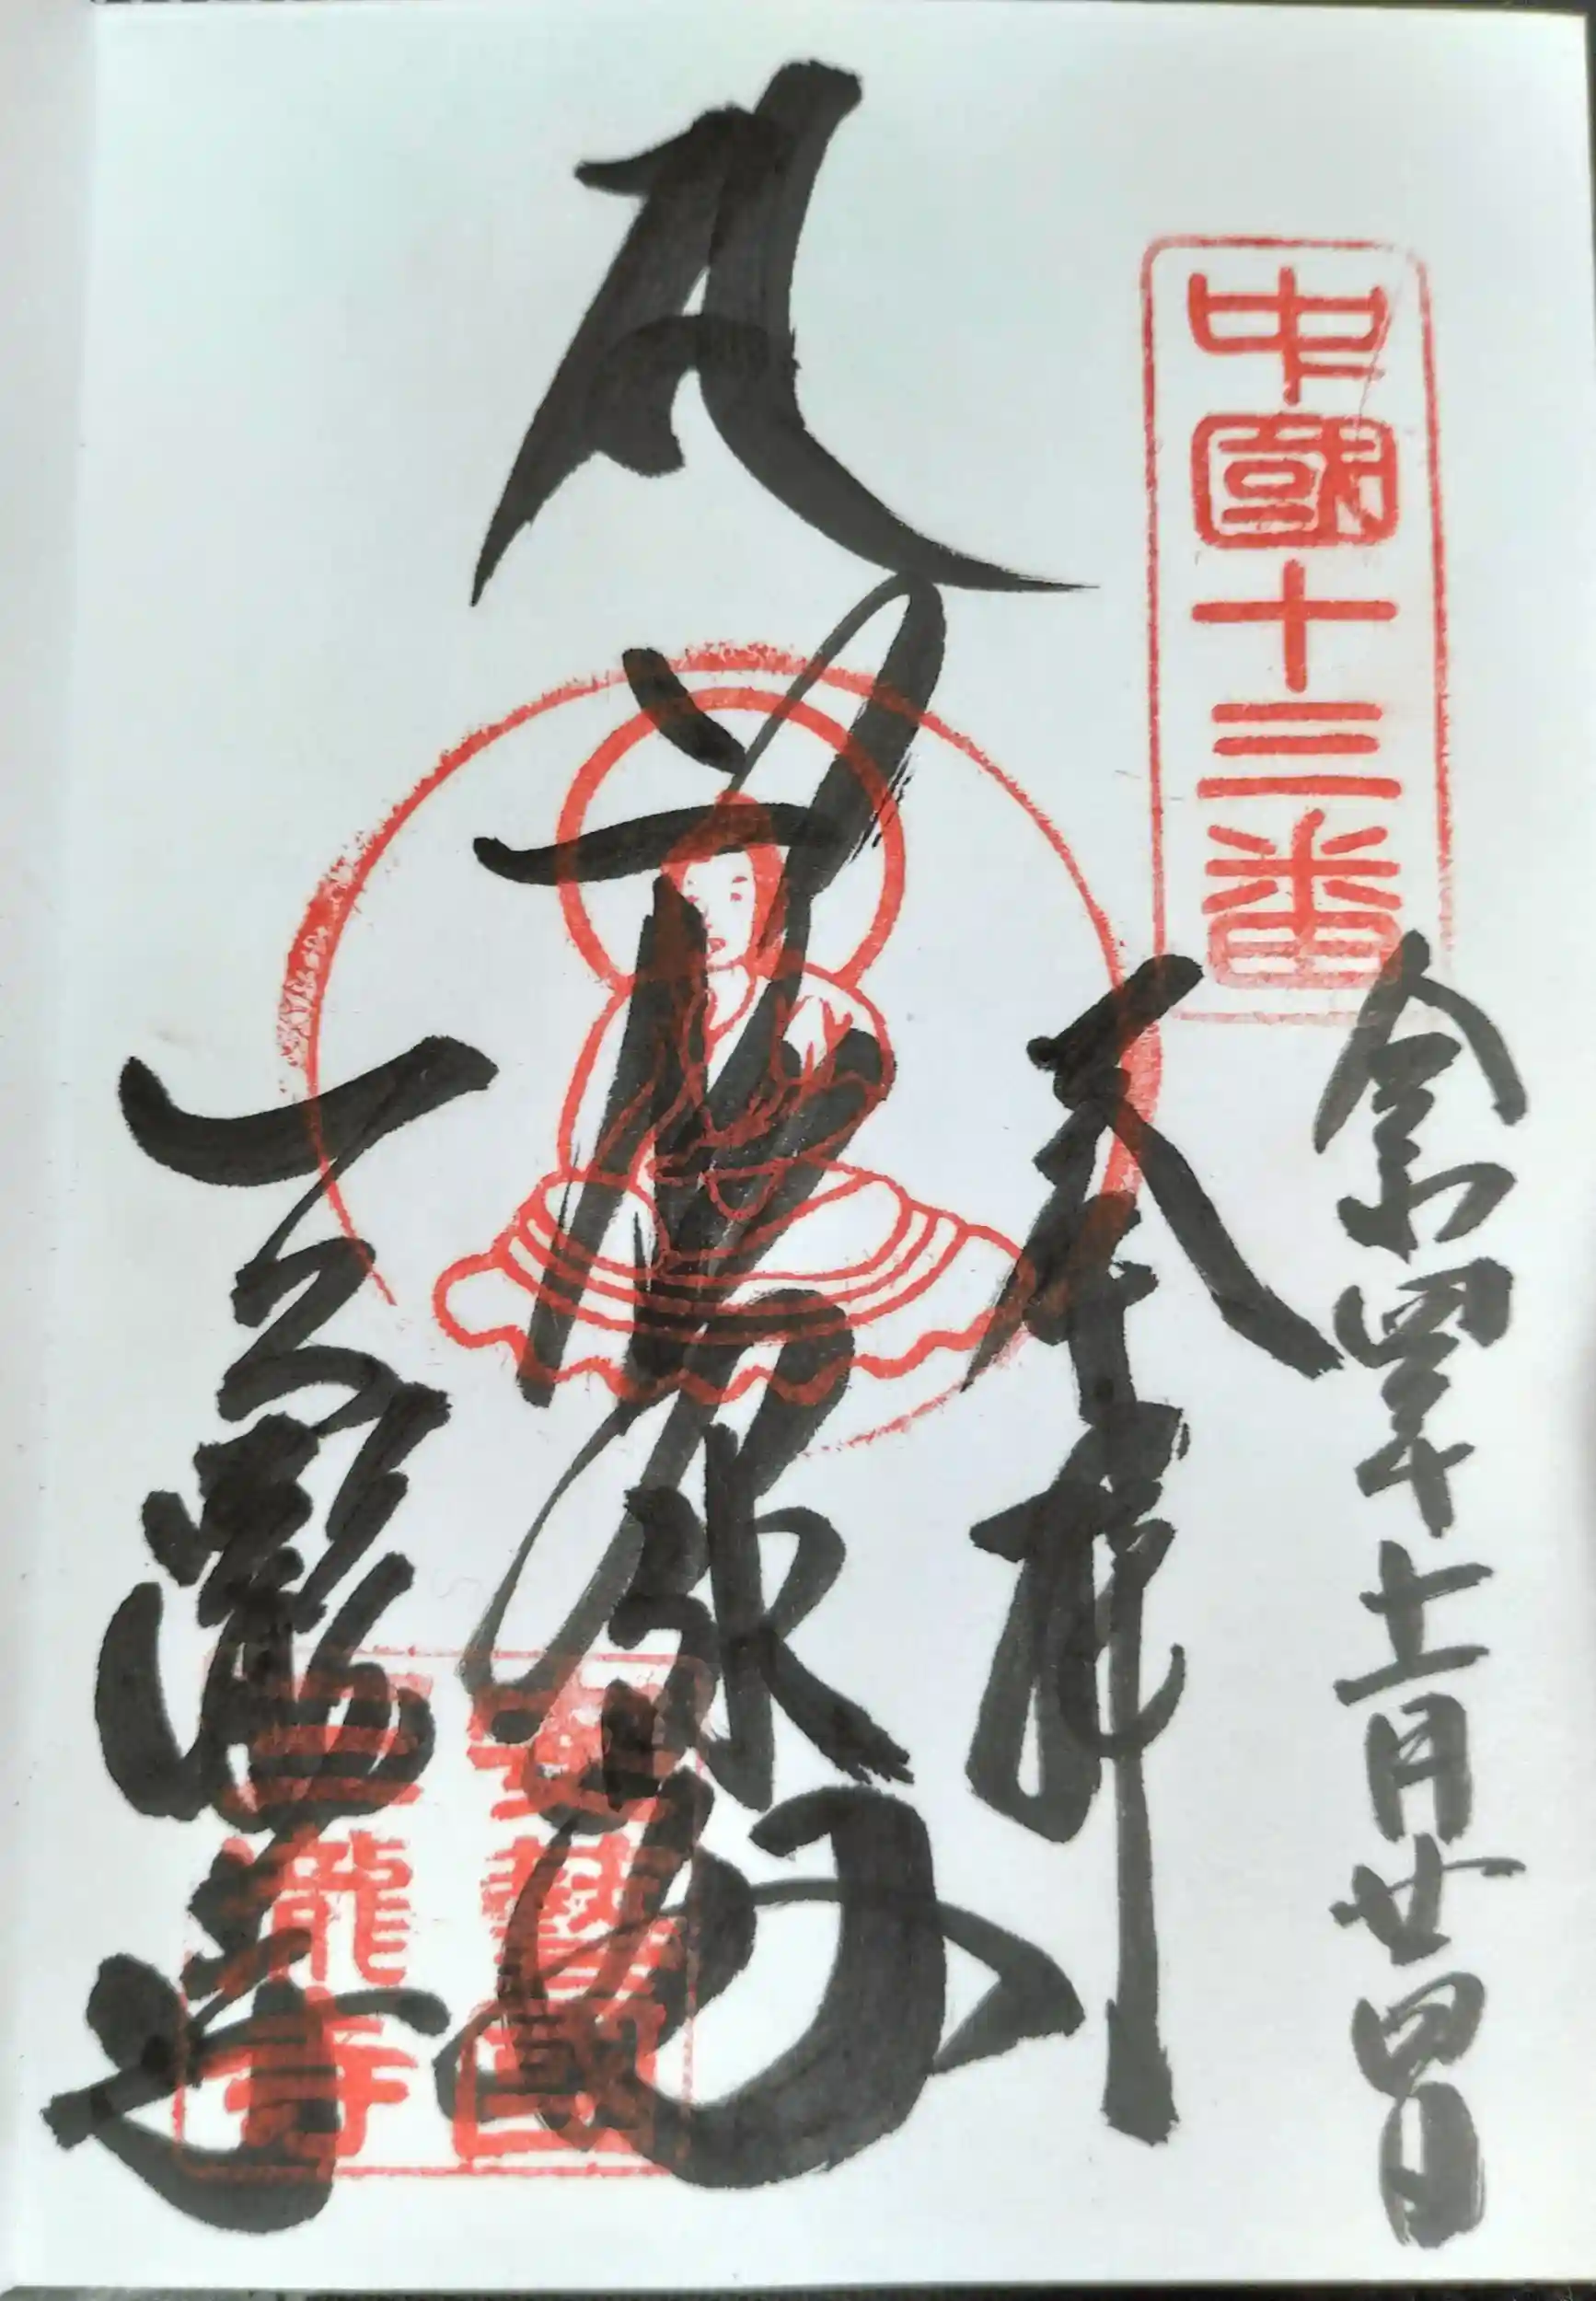 中國十三番
令和四年十一月廿四日
奉拝
三瀧寺
安藝國
三瀧寺